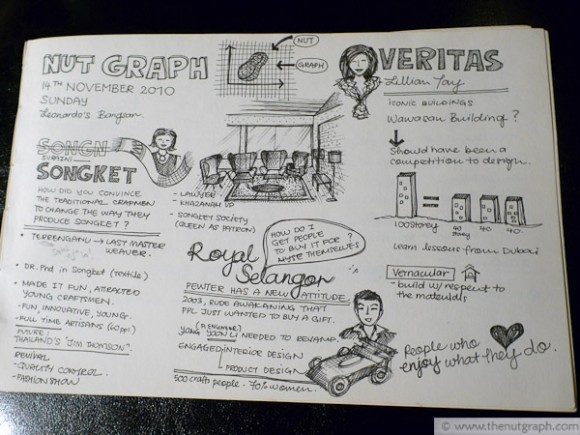 NUT GRAPH
14TH NOVEMBER 2010
SUNDAY
Leonardo's Bangsar.
NUT
GRAPH
SONGKET
HOW DID YOU CONVINCE
THE TRADITIONAL CRAFTMEN
TO CHANGE THE WAY THEY
PRODUCE SONGKET?
• TERRENGANU → LAST MASTER
WEAVER.
• DR. Phd in Songket (textile)
• MADE IT FUN, ATTRACTED
YOUNG CRAFTSMEN.
- FUN, INNOVATIVE, YOUNG.
- FULL TIME ARTISANS
FUTURE:
THAILAND'S "JIM THOMSON".
Revival
- QUALITY CONTROL
- FASHION SHOW
- LAWYER
- KHAZANAH VP
- SONGKET SOCIETY
(QUEEN AS PATRON)
HOW DO I
GET PEOPLE
TO BUY IT FOR
THEMSELVES?
Royal
Selangor
PEWTER HAS A NEW ATTITUDE
2002, RUDE AWAKENING THAT
PPL JUST WANTED TO BUY A GIFT.
YOON LI NEEDED TO REVAMP.
ENGAGED INTERIOR DESIGN
PRODUCT DESIGN
500 CRAFTS PEOPLE. 70% WOMEN.
VERITAS
Lillian Tay
ICONIC BUILDINGS
Wawasan Building?
Should have been a
competition to design.
100 storey = 40 storey 40 40.
learn lessons from Dubai
Vernacular
- build w/ respect to
the materials
People who
enjoy what they do.
© www.thenutgraph.com